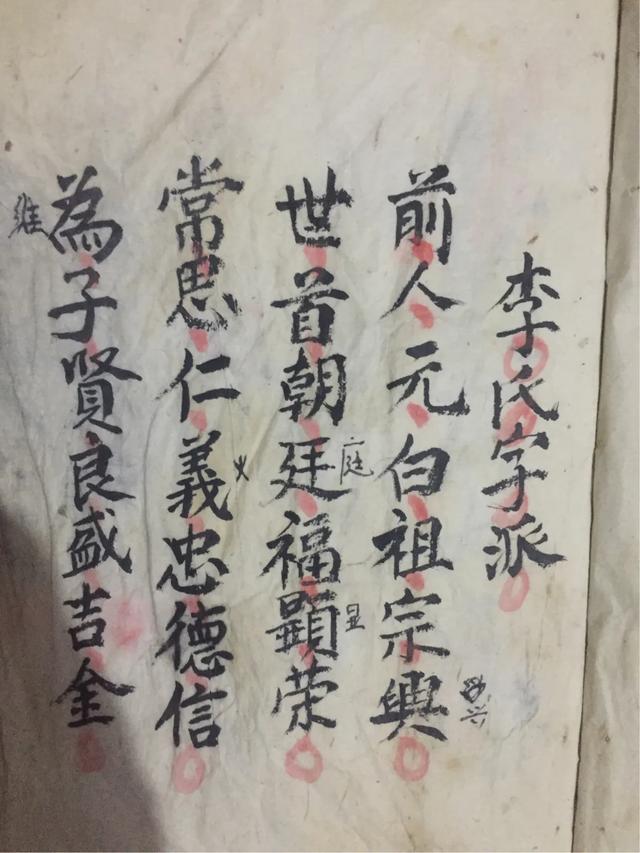 李氏字派
前人元白祖宗興
兴
世首朝廷福顯荣
庭
显
常思仁義忠德信
义
為子賢良盛吉金
維